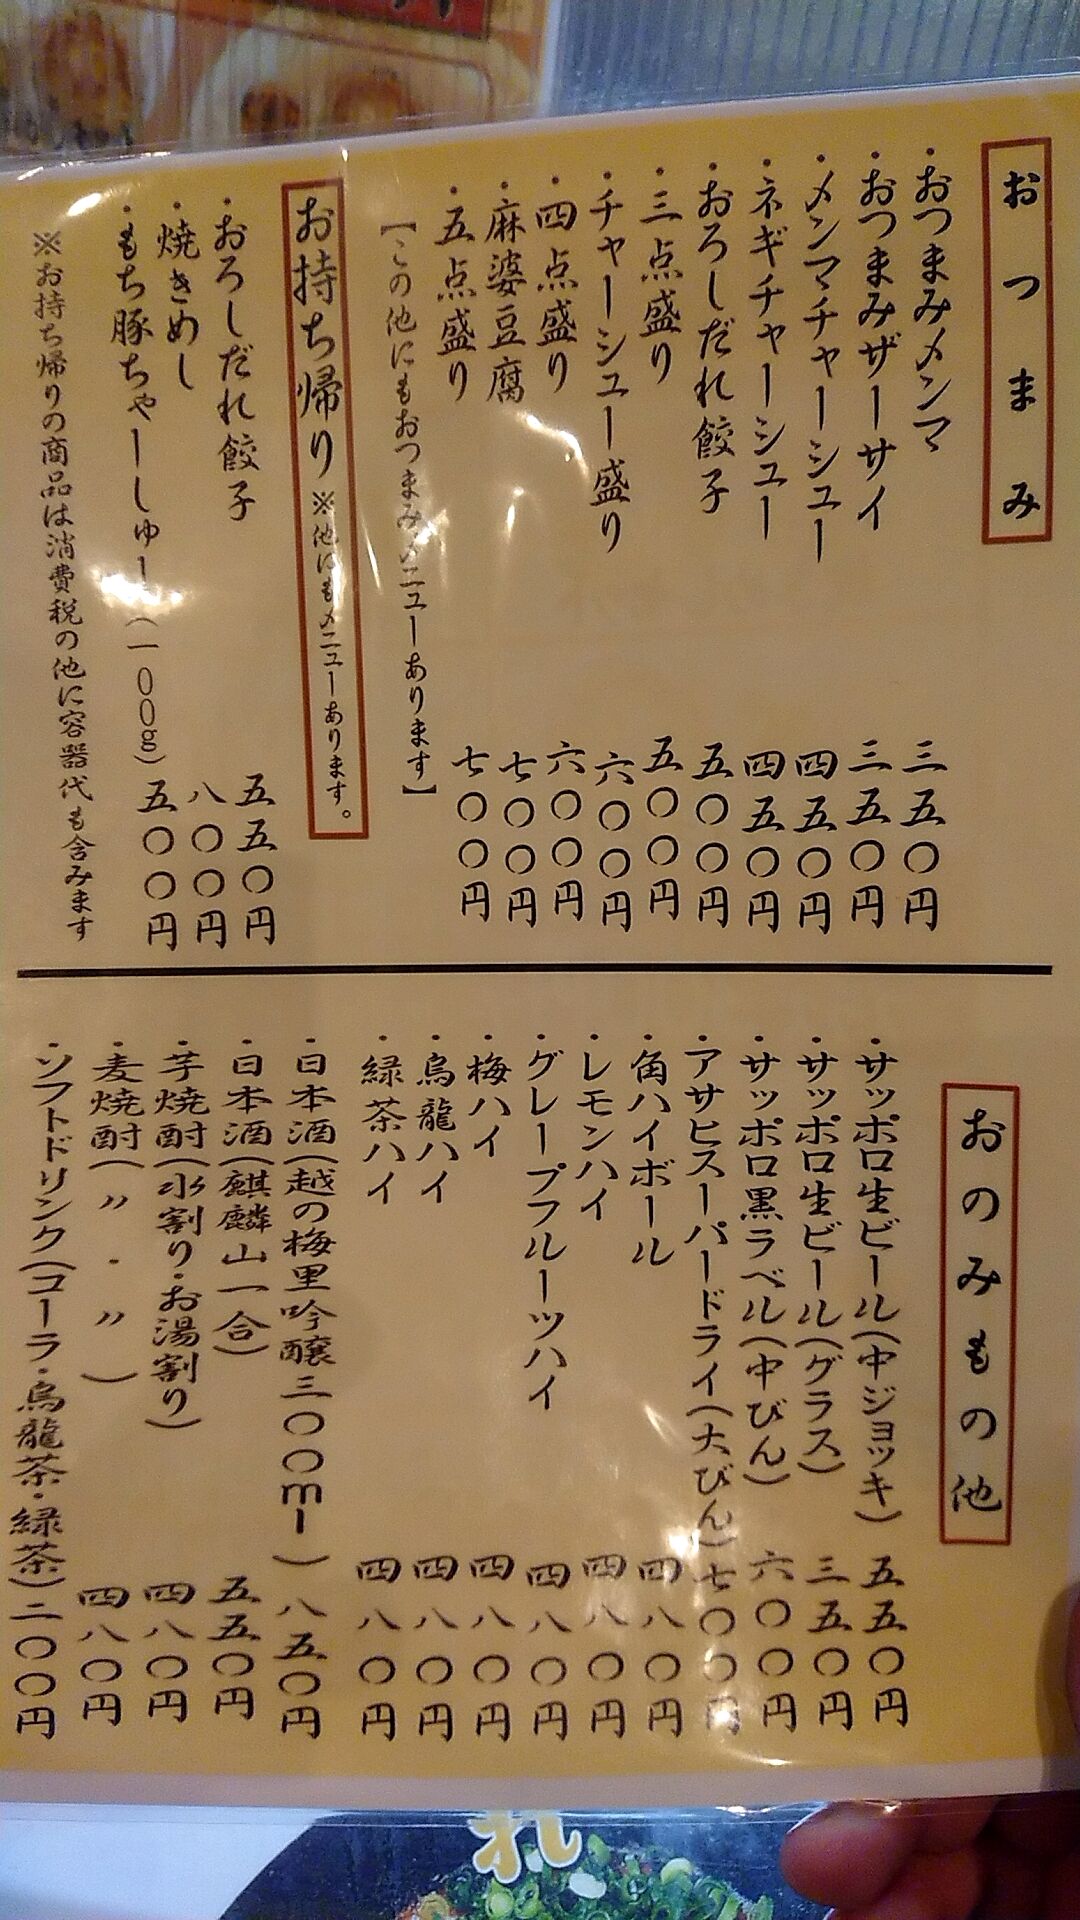 おつまみ
・おつまみメンマ 三五〇円
・おつまみザーサイ 三五〇円
・メンマチャーシュー 四五〇円
・ネギチャーシュー 四五〇円
・おろしだれ餃子 五〇〇円
・三点盛り 五〇〇円
・チャーシュー盛り 六〇〇円
・四点盛り 六〇〇円
・麻婆豆腐 七〇〇円
・五点盛り 七〇〇円
【この他にもおつまみメニューあります】
お持ち帰り ※他にもメニューあります。
・おろしだれ餃子 五五〇円
・焼きめし 八〇〇円
・もち豚ちゃーしゅー(一〇〇g) 五〇〇円
※お持ち帰りの商品は消費税の他に容器代も含みます
おのみもの他
・サッポロ生ビール(中ジョッキ) 五五〇円
・サッポロ生ビール(グラス) 三五〇円
・サッポロ黒ラベル(中びん) 六〇〇円
・アサヒスーパードライ(大びん) 七〇〇円
・角ハイボール 四八〇円
・レモンハイ 四八〇円
・グレープフルーツハイ 四八〇円
・梅ハイ 四八〇円
・烏龍ハイ 四八〇円
・緑茶ハイ 四八〇円
・日本酒(越の梅里吟醸三〇〇ml) 八五〇円
・日本酒(麒麟山一合) 五五〇円
・芋焼酎(水割り・お湯割り) 四八〇円
・麦焼酎(〃・〃) 四八〇円
・ソフトドリンク(コーラ・烏龍茶・緑茶) 二〇〇円
れ